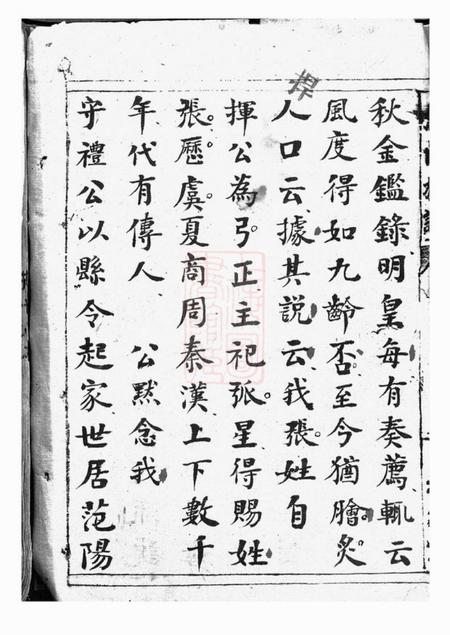 秋金鑑錄明皇每有奏薦輒云
風度得如九齡否至今猶膾炙
人口云據其說云我張姓自
揮公為弓正主祀弧星得賜姓
張歷虞夏商周秦漢上下數千
年代有傳人 公默念我
守禮公以縣令起家世居范陽